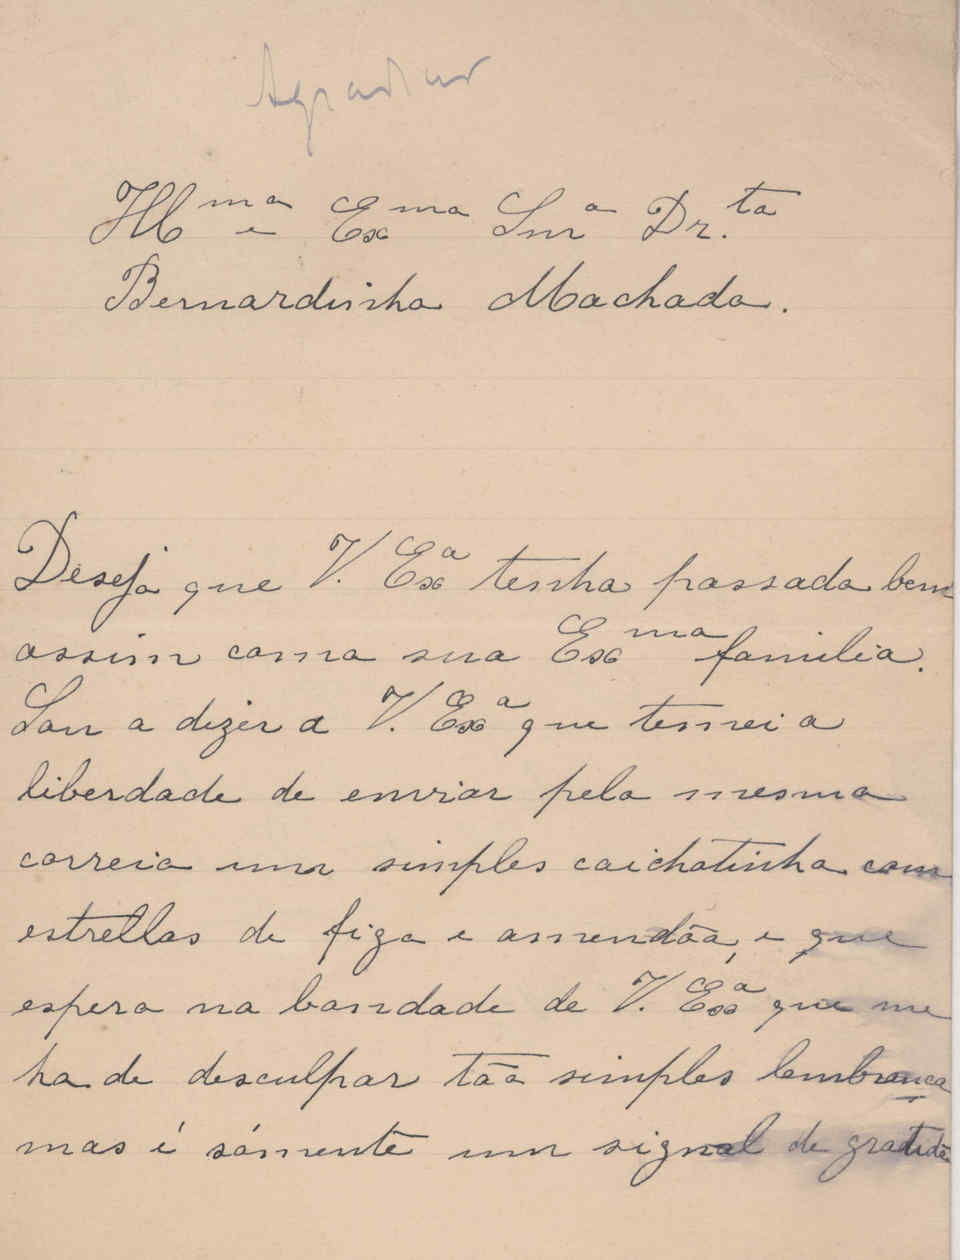 Agradecer
Illma e Exma Snra Dr.ta
Bernardinha Machada.
Deseja que V. Exa tenha passada bem
assim cama sua Exma familia.
Sou a dizer a V. Exa que temei a
liberdade de enviar pela mesma
correia um simples caichatinha com
estrellas de figa e amendãa, e que
espera na bandade de V. Exa que me
ha de desculpar tãa simples lembranca
mas é sómente um signal de gratidão